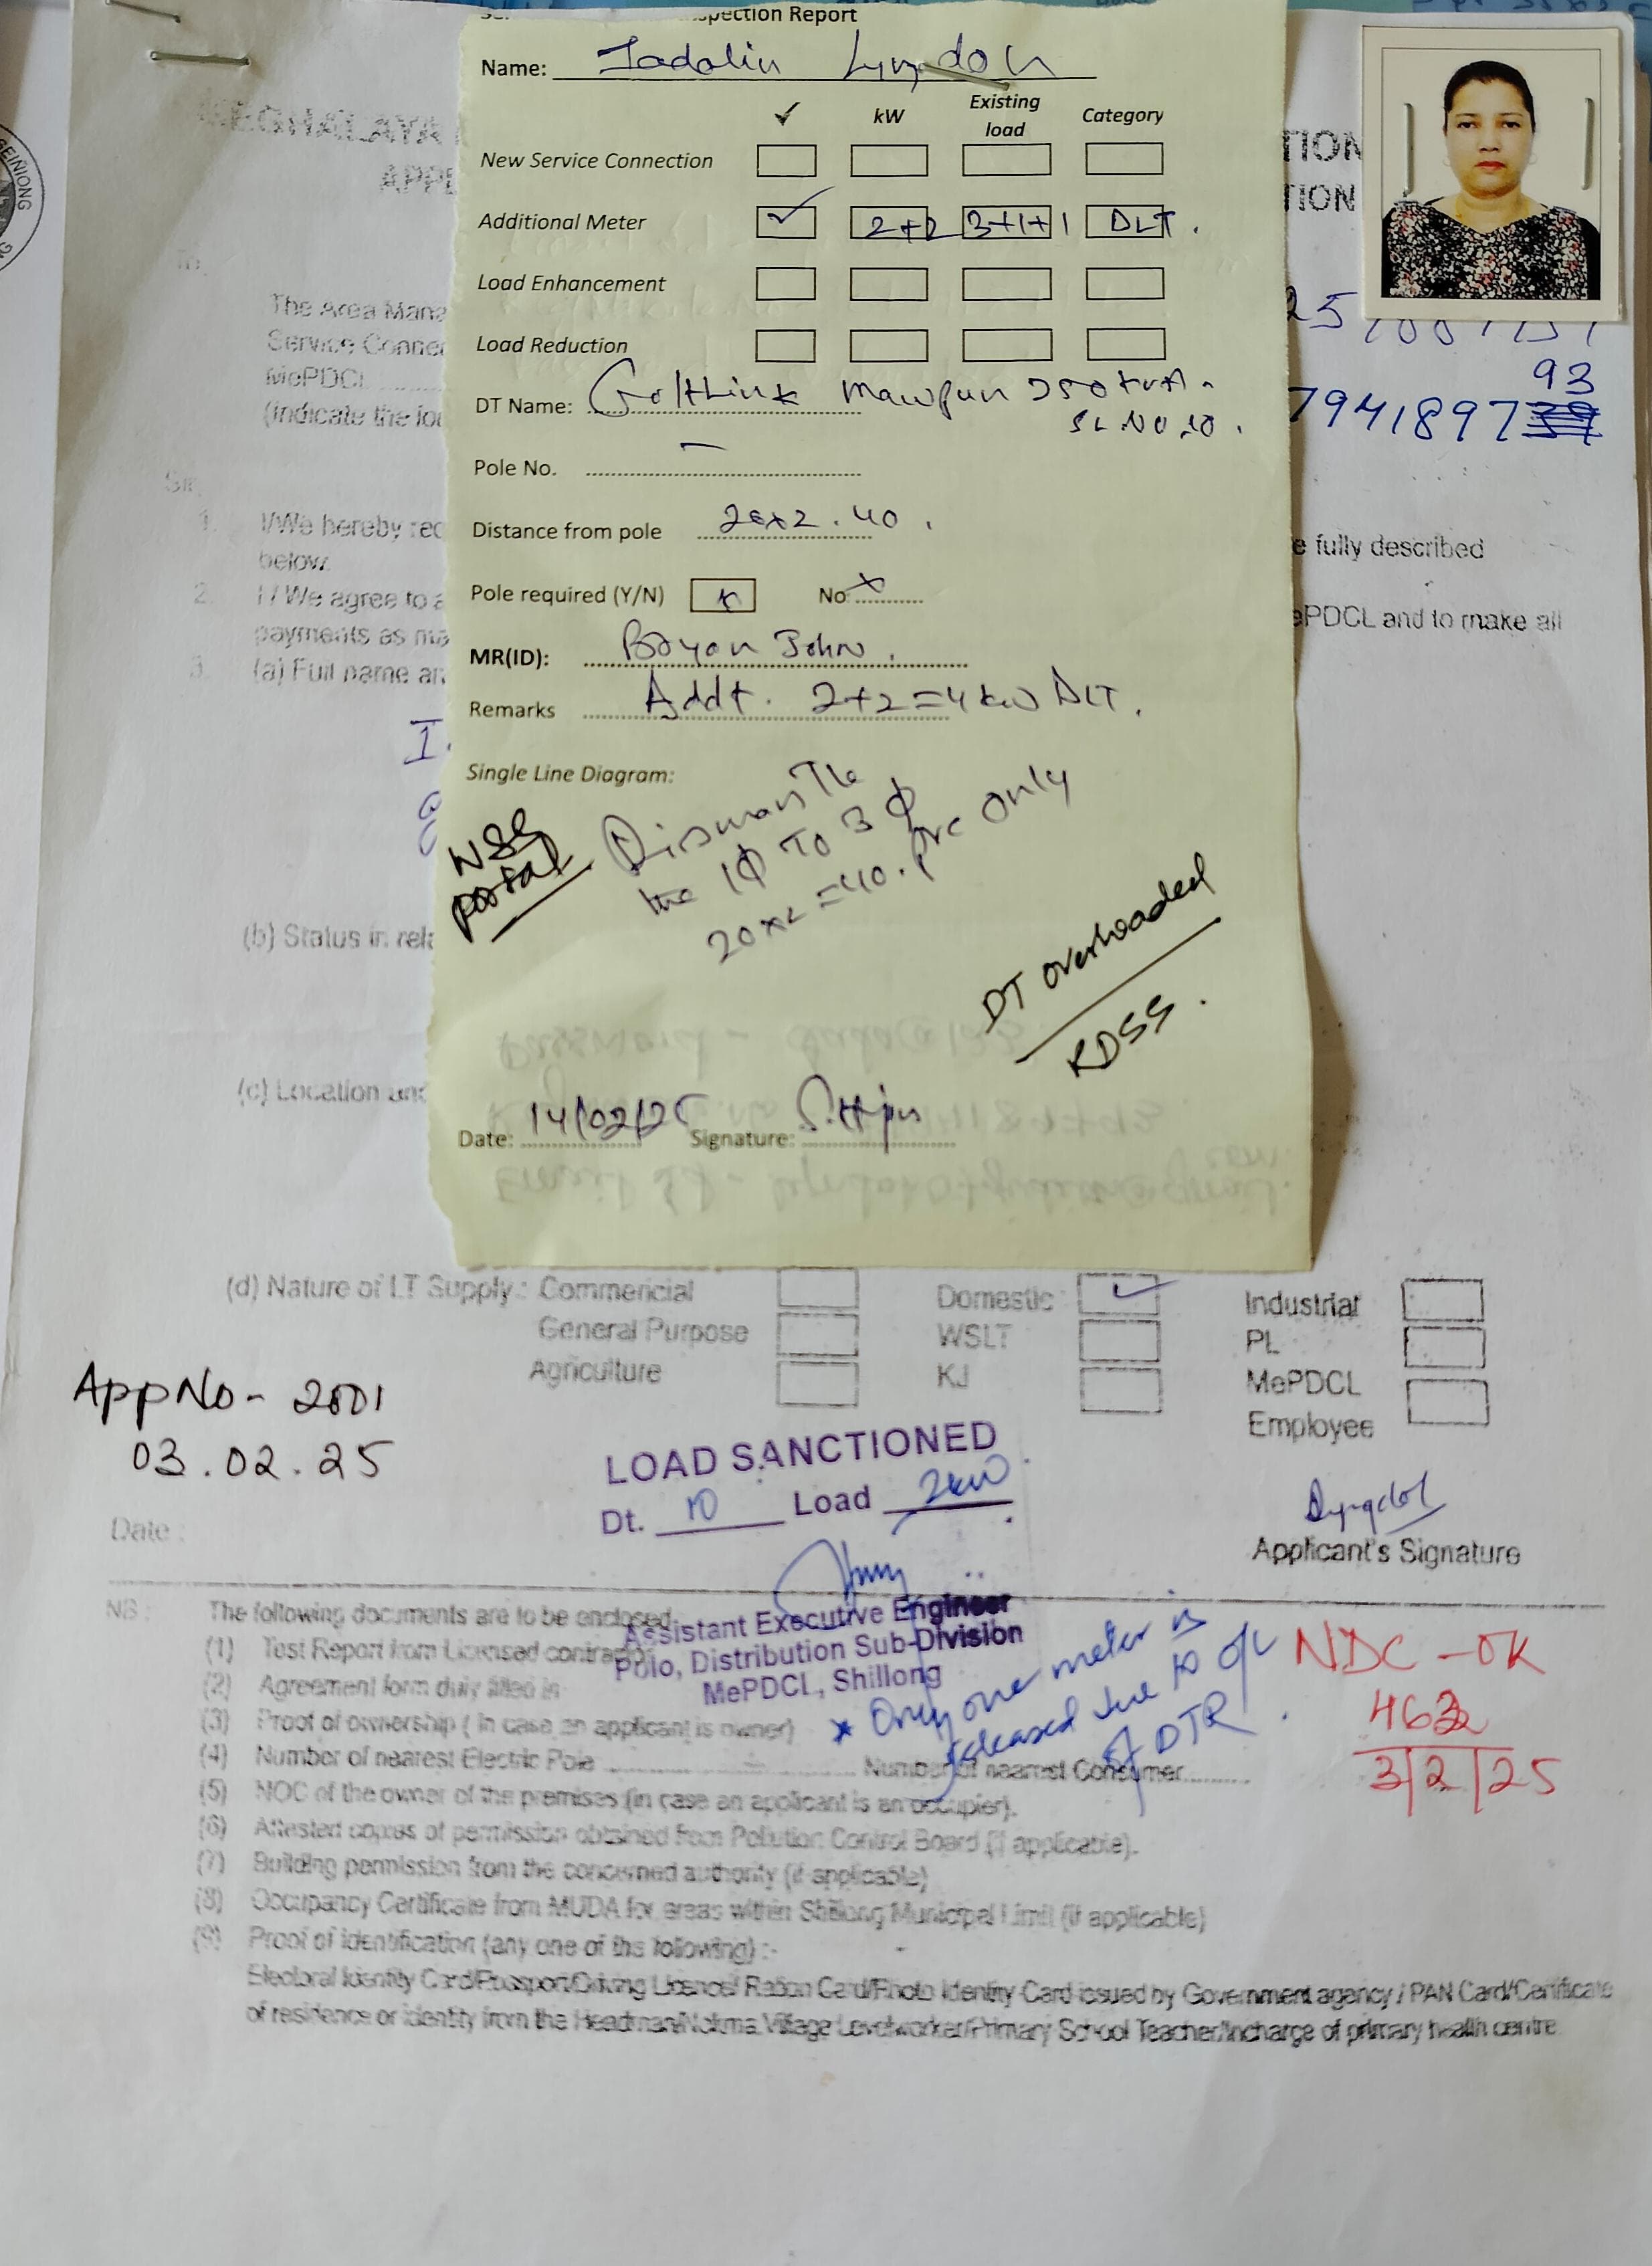 Inspection Report
Name: Iadalin Lyngdoh
✓ kW Existing load Category
New Service Connection
Additional Meter ✓ 2+2 3+1+1 DLT.
Load Enhancement
Load Reduction
DT Name: Golflink Mawpun 250 KVA.
SL NO 10.
Pole No. –
Distance from pole 20x2.40.
Pole required (Y/N) x No. x
MR(ID): Boyan John.
Remarks Addt. 2+2=4kW DLT.
Single Line Diagram:
NSC Portal
Dismantle
the 1Φ To 3Φ
20x2=40. pvc Only
DT overloaded
RDSS.
Date: 14/02/25 Signature:
MEGHALAYA
TION
APPL
TION
93
7941897
The Area Mana
Service Connec
MePDCL
(Indicate the lo
Sir,
1. I/We hereby req
e fully described
below.
2. I / We agree to a
ePDCL and to make all
payments as ma
3. (a) Full name an
(b) Status in rela
(c) Location and
(d) Nature of LT Supply: Commericial Domestic ✓ Industrial
General Purpose WSLT PL
Agriculture KJ MePDCL Employee
App No- 2801
03.02.25
LOAD SANCTIONED
Dt. 10 Load 2kW
Date :
Applicant's Signature
Assistant Executive Engineer
Polo, Distribution Sub-Division
MePDCL, Shillong
* Only one meter is
released due to o/L
of DTR.
NDC - OK
4632
3/2/25
NB : The following documents are to be enclosed:
(1) Test Report from Licensed contractor
(2) Agreement form duly filled in
(3) Proof of ownership ( in case an applicant is owner)
(4) Number of nearest Electric Pole .......... Number of nearest Consumer..........
(5) NOC of the owner of the premises (in case an applicant is an occupier).
(6) Attested copies of permission obtained from Pollution Control Board (if applicable).
(7) Building permission from the concerned authority (if applicable)
(8) Occupancy Certificate from MUDA for areas within Shillong Municipal Limit (if applicable)
(9) Proof of identification (any one of the following) :-
Electoral Identity Card/Passport/Driving Licence/ Ration Card/Photo Identity Card issued by Government agency / PAN Card/Certificate
of residence or identity from the Headman/Nokma Village Levelworker/Primary School Teacher/Incharge of primary health centre